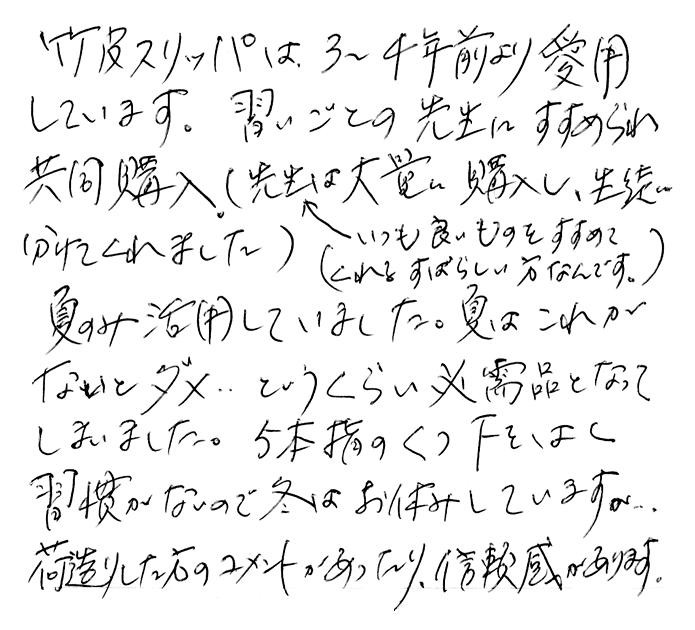 竹皮スリッパは、3〜4年前より愛用
しています。習いごとの先生にすすめられ
共同購入。(先生は大量に購入し、生徒に
分けてくれました)
いつも良いものをすすめて
(くれるすばらしい方なんです。)
夏のみ活用していました。夏はこれが
ないとダメ‥というくらい必需品となって
しまいました。5本指のくつ下をはく
習慣がないので冬はお休みしていますが‥.
荷造りした方のコメントがあったり、信頼感があります。